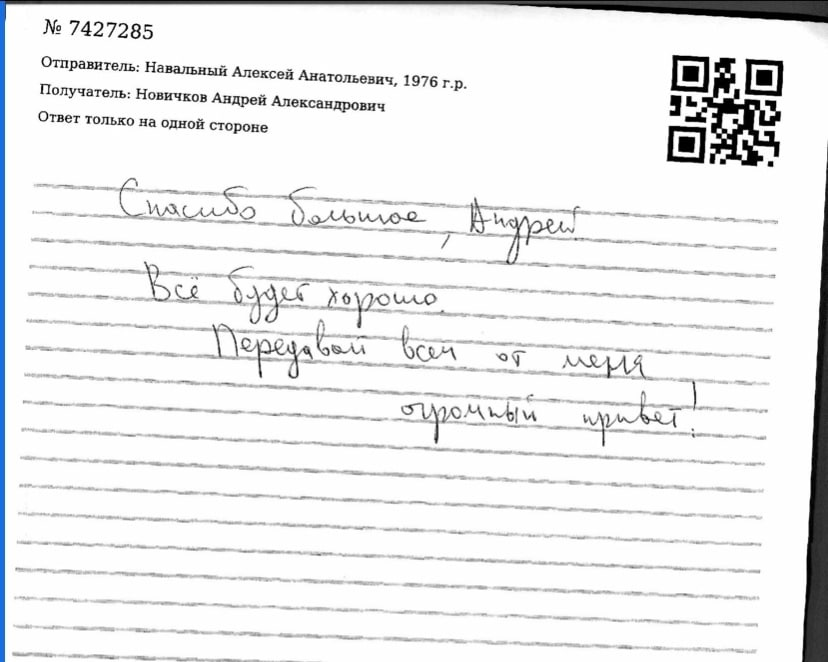 № 7427285
Отправитель: Навальный Алексей Анатольевич, 1976 г.р.
Получатель: Новичков Андрей Александрович
Ответ только на одной стороне
Спасибо большое, Андрей.
Всё будет хорошо.
Передавай всем от меня
огромный привет!